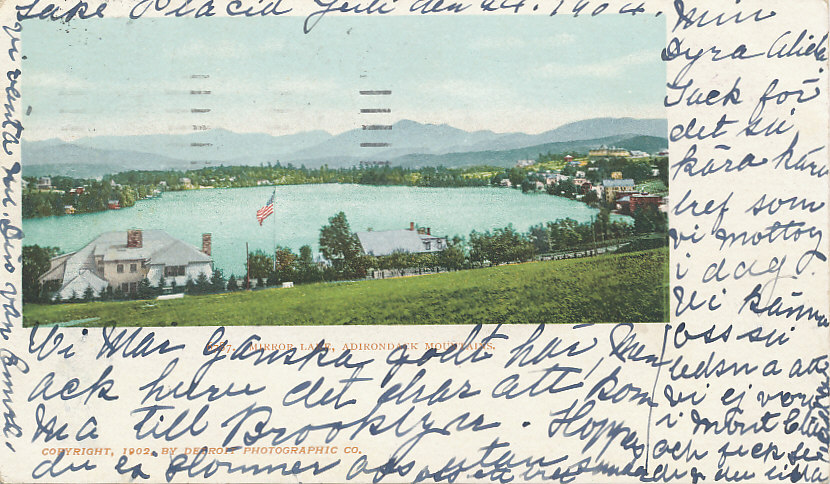 Lake Placid Juli den 24. 1904.
Min
Dyra Alida
Tack för
det så
kära kära
bref som
vi mottog
i dag.
Vi känna
oss så
ledsna att
vi ej voro
i Mont
och fick se
dig
Vi Mår ganska godt här, Men
ack huru det drar att kom
ma till Brooklyn. Hoppas
du ej glömmer oss utan
vi vänta
din vän
67. MIRROR LAKE, ADIRONDACK MOUNTAINS.
COPYRIGHT, 1902, BY DETROIT PHOTOGRAPHIC CO.